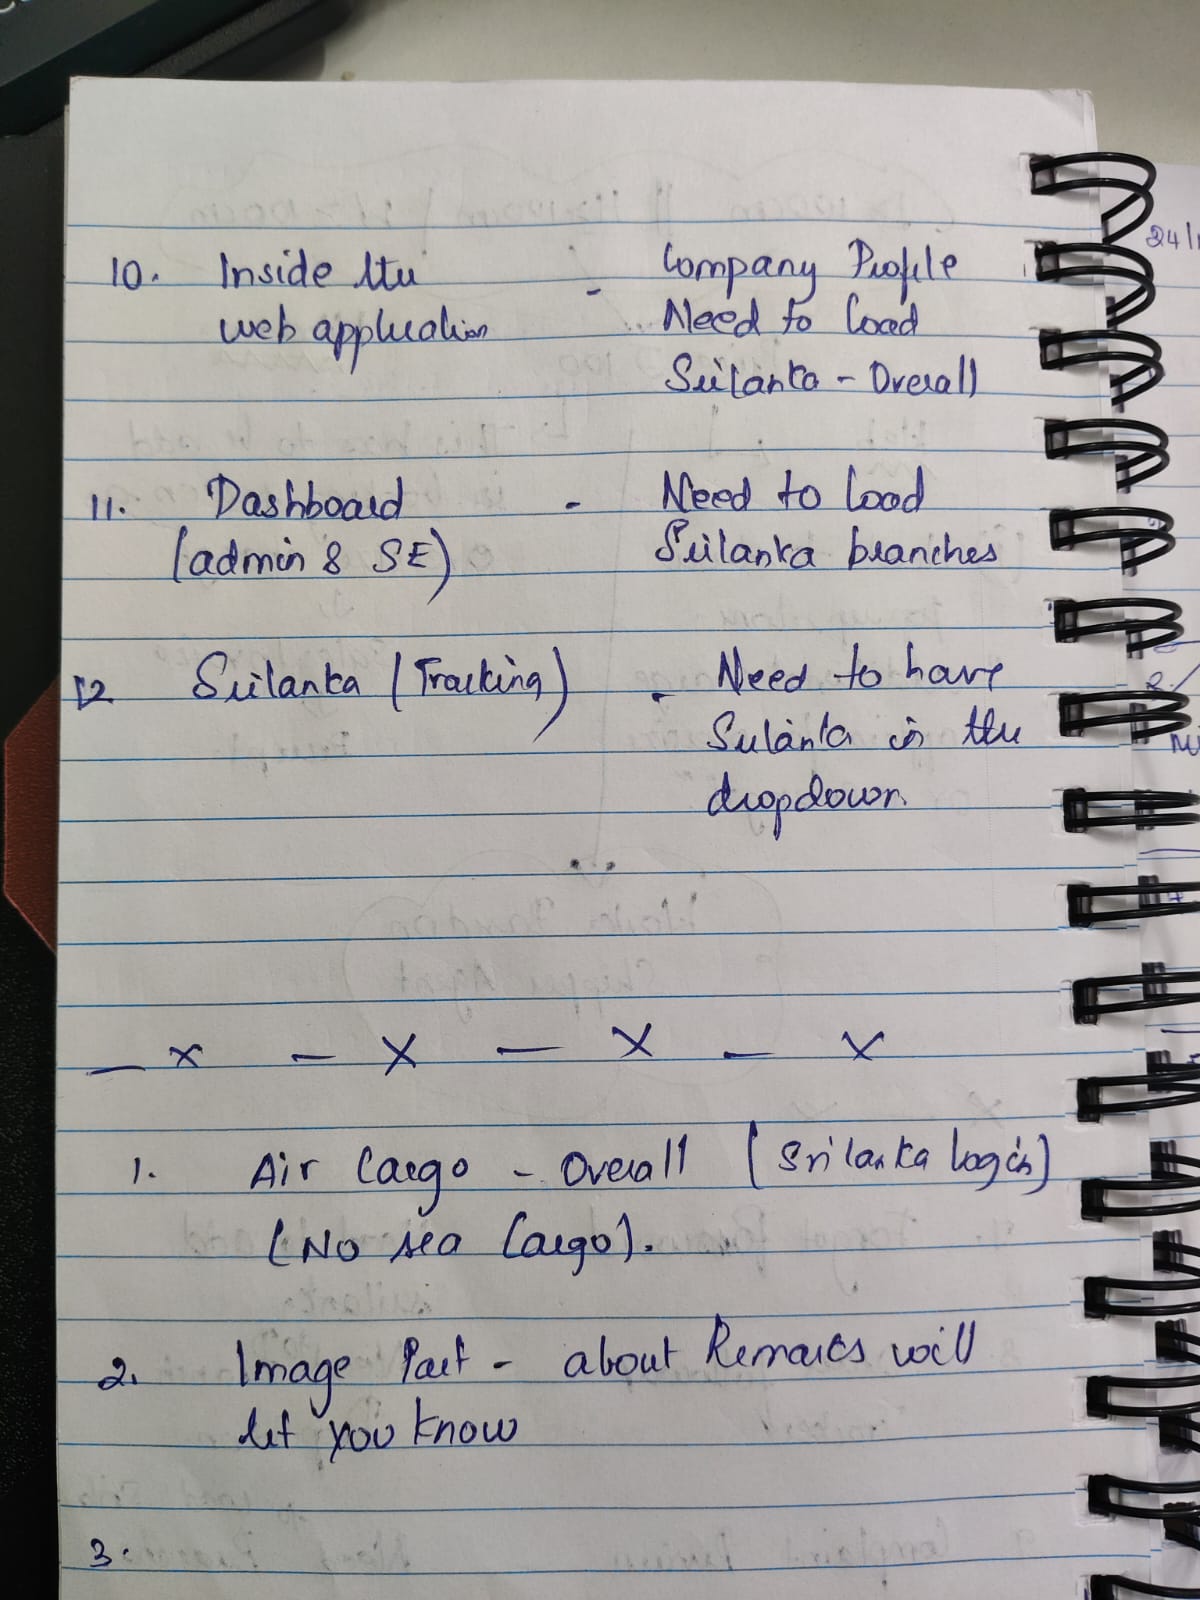 10. Inside the - Company Profile
web application Need to load
Srilanka - Overall
11. Dashboard - Need to load
(admin & SE) Srilanka branches
12 Srilanka (Tracking) - Need to have
Srilanka in the
dropdown.
— x — x — x — x
1. Air Cargo - Overall (Srilanka login)
(No sea Cargo).
2. Image Part - about Remarks will
let you know
3.
24/1